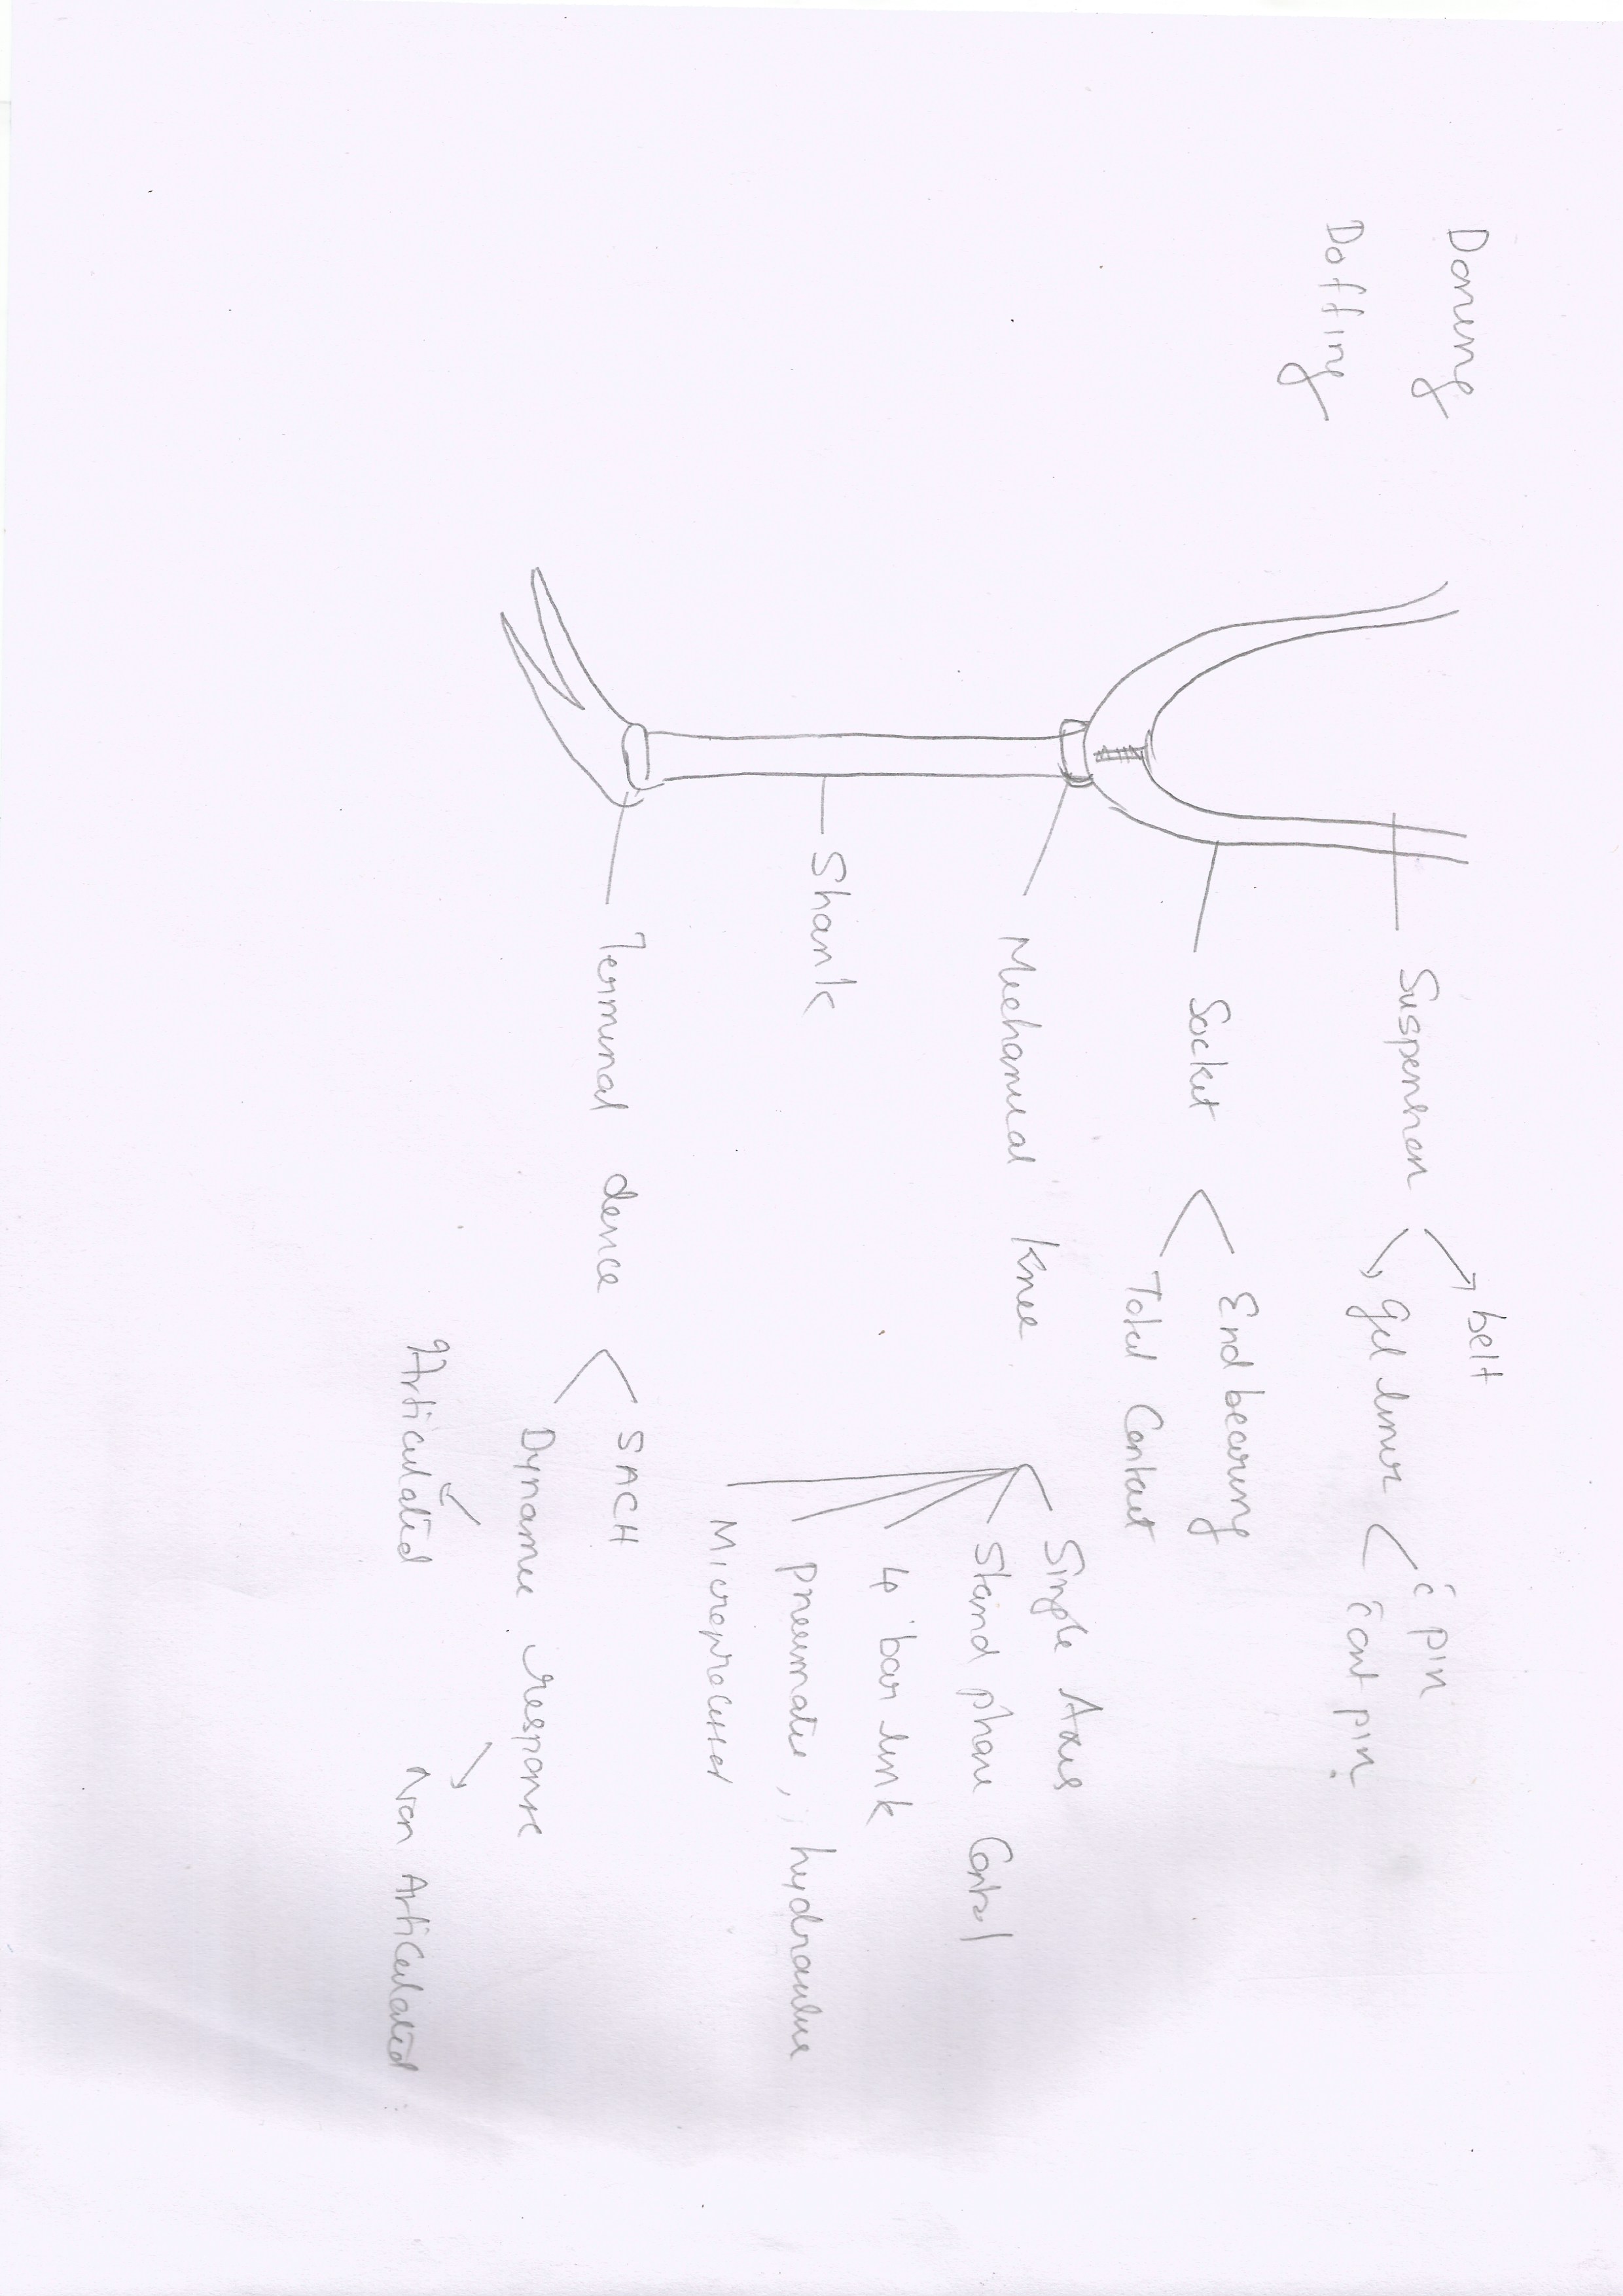 Doning
Doffing
Suspension
belt
gel liner
c̄ pin
c̄out pin.
Socket
End bearing
Total Contact
Mechanical Knee
Single Axis
Stand phase Control
4 bar link
pneumatic, hydraulic
Microprocesser
Shank
Terminal device
SACH
Dynamic response
Articulated
Non Articulated.